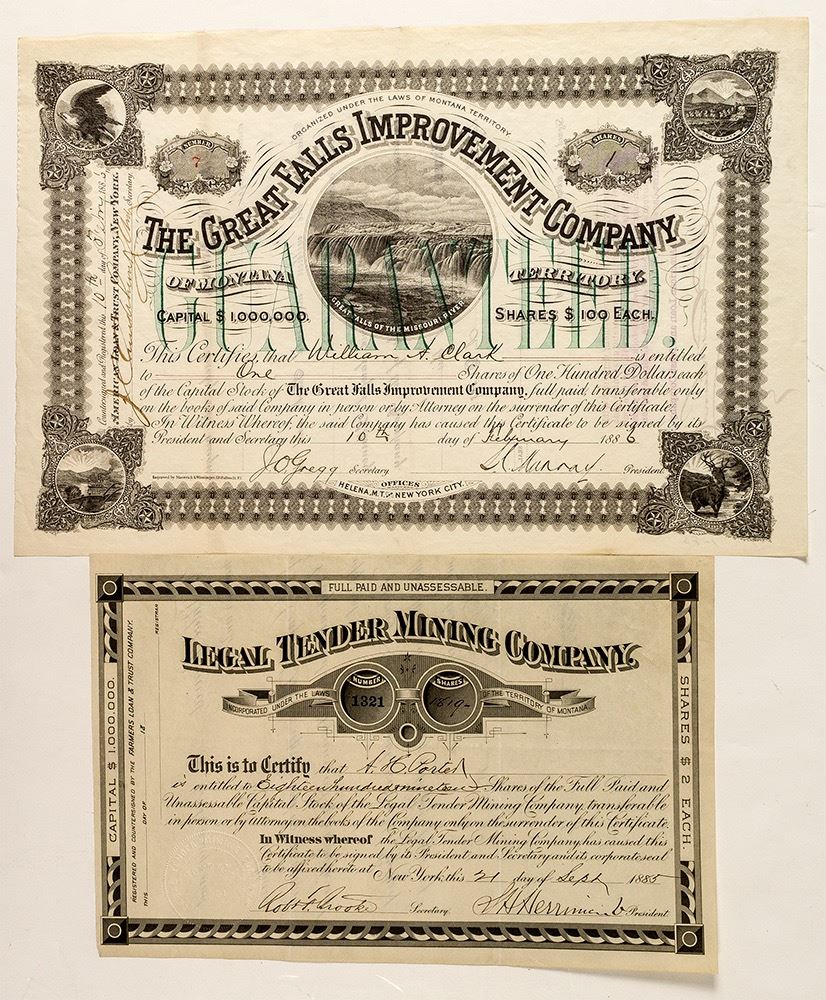 ORGANIZED UNDER THE LAWS OF MONTANA TERRITORY
NUMBER
7
SHARES
1
THE GREAT FALLS IMPROVEMENT COMPANY
GUARANTEED.
OF MONTANA TERRITORY.
GREAT FALLS OF THE MISSOURI RIVER
CAPITAL $ 1,000,000. SHARES $ 100 EACH.
This Certifies that William A. Clark is entitled
to One Shares of One Hundred Dollars each
of the Capital Stock of The Great Falls Improvement Company, full paid, transferable only
on the books of said Company in person or by Attorney on the surrender of this Certificate.
In Witness Whereof, the said Company has caused this Certificate to be signed by its
President and Secretary this 10th day of February 1886
J O Gregg Secretary President
OFFICES
HELENA, M.T. AND NEW YORK CITY.
Countersigned and Registered this 10th day of 188
AMERICAN LOAN & TRUST COMPANY, NEW YORK.
Secretary
FULL PAID AND UNASSESSABLE.
LEGAL TENDER MINING COMPANY.
NUMBER
1321
SHARES
1819
INCORPORATED UNDER THE LAWS OF THE TERRITORY OF MONTANA
This is to Certify that A. H. Porter
is entitled to Eighteen hundred nineteen Shares of the Full Paid and
Unassessable Capital Stock of the Legal Tender Mining Company, transferable
in person or by Attorney on the books of the Company only on the surrender of this Certificate.
In Witness whereof the Legal Tender Mining Company has caused this
Certificate to be signed by its President and Secretary and its corporate seal
to be affixed hereto at New York this 21 day of Sept 1885
Secretary. President
CAPITAL $ 1,000,000.
SHARES $ 2 EACH.
REGISTERED AND COUNTERSIGNED BY THE FARMERS LOAN & TRUST COMPANY.
THIS DAY OF 18
REGISTRAR